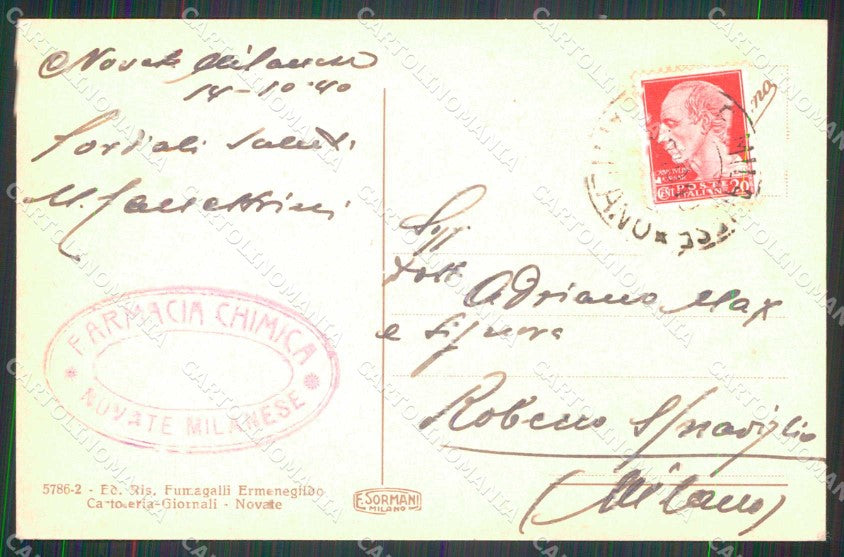 Novate Milanese
14-10-40
Cordiali saluti
M.
FARMACIA CHIMICA
NOVATE MILANESE
5786-2 - Ed. Ris. Fumagalli Ermenegildo
Cartoleria-Giornali - Novate
E. SORMANI
MILANO
POSTE
ITALIANE
CENT 20
Sig.
Dott. Adriano Max
e Signora
Robecco s/naviglio
(Milano)
CARTOLINOMANIA